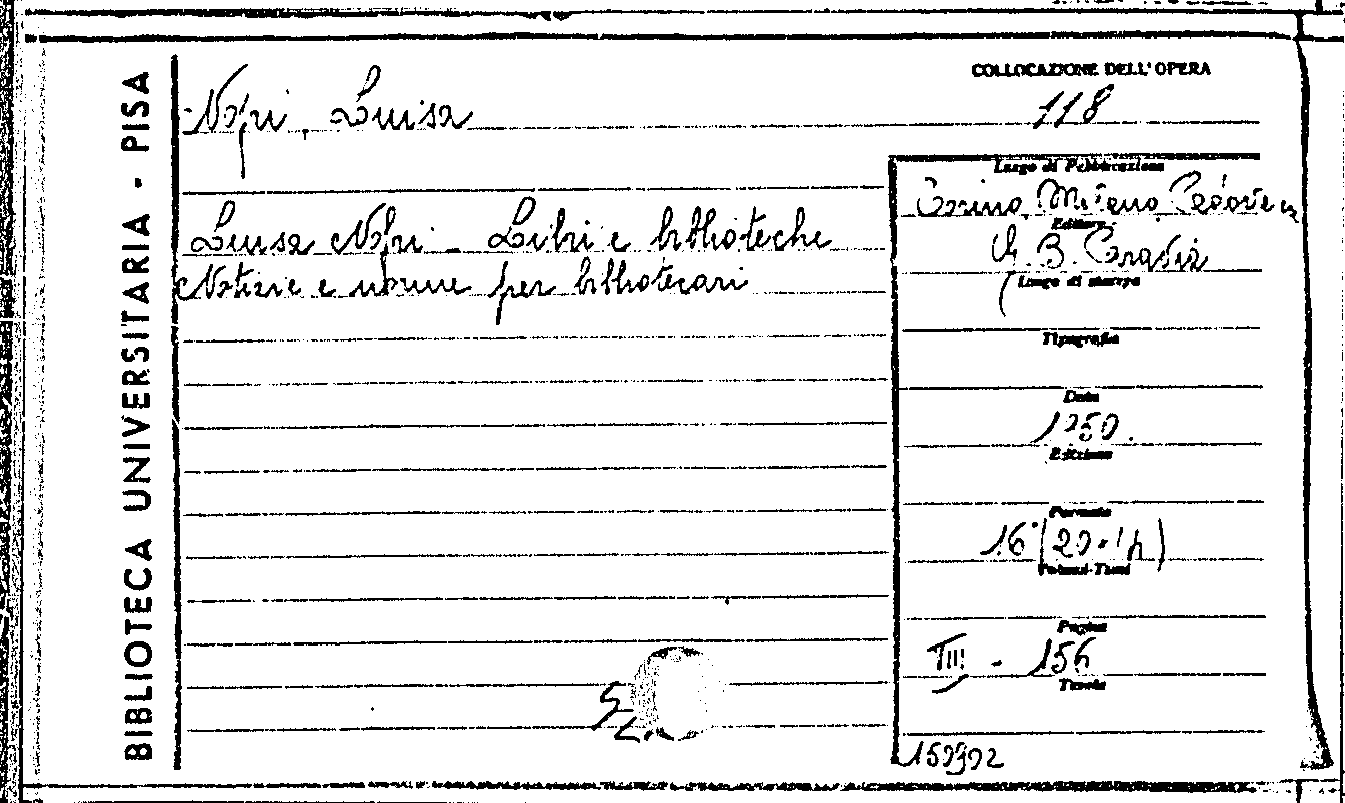 BIBLIOTECA UNIVERSITARIA - PISA
COLLOCAZIONE DELL'OPERA
118
Nofri, Luisa
Luisa Nofri - Libri e biblioteche
Notizie e norme per bibliotecari
Luogo di Pubblicazione
Torino, Milano Padova
Editore
G. B. Paravia
Luogo di stampa
Tipografia
Data
1950.
Edizione
Formato
16° (20 ·
Volumi-Tomi
Pagine
- 156
Tavole
159992